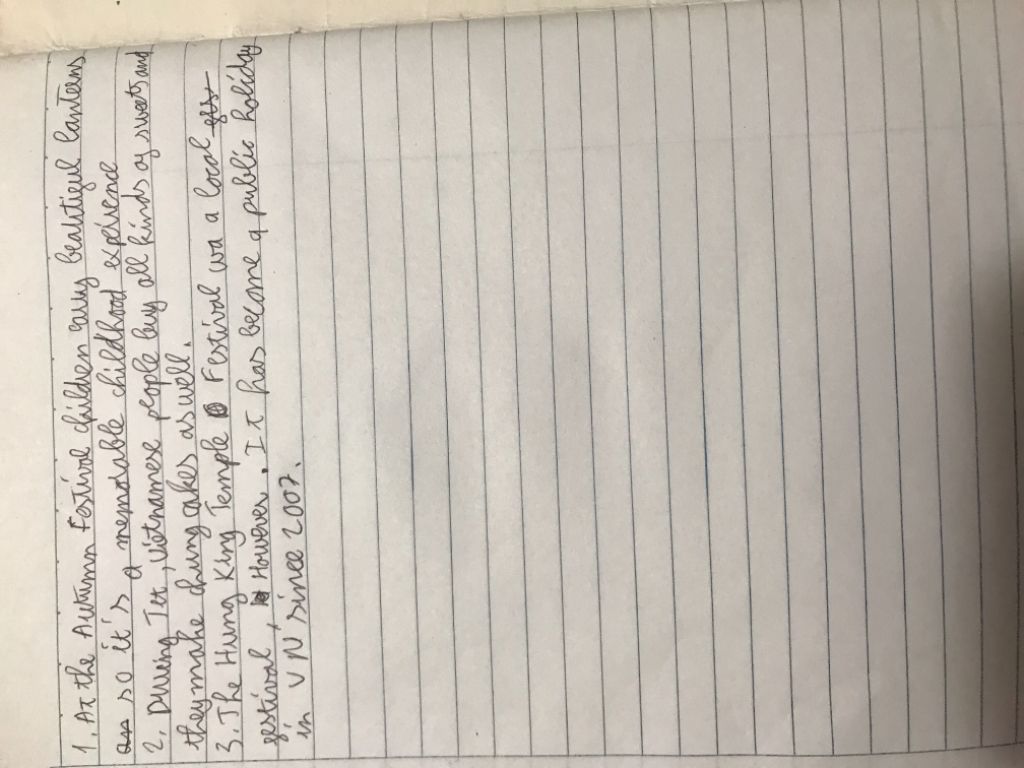 1. At the Autumn Festival children carry beatiful lanterns
so it's a memorable childhood experience
2. During Tet, Vietnamese people buy all kinds of sweets and
they make chung cakes as well.
3. The Hung King Temple Festival wa a local
festival, However. It has become a public holiday
in VN since 2007.